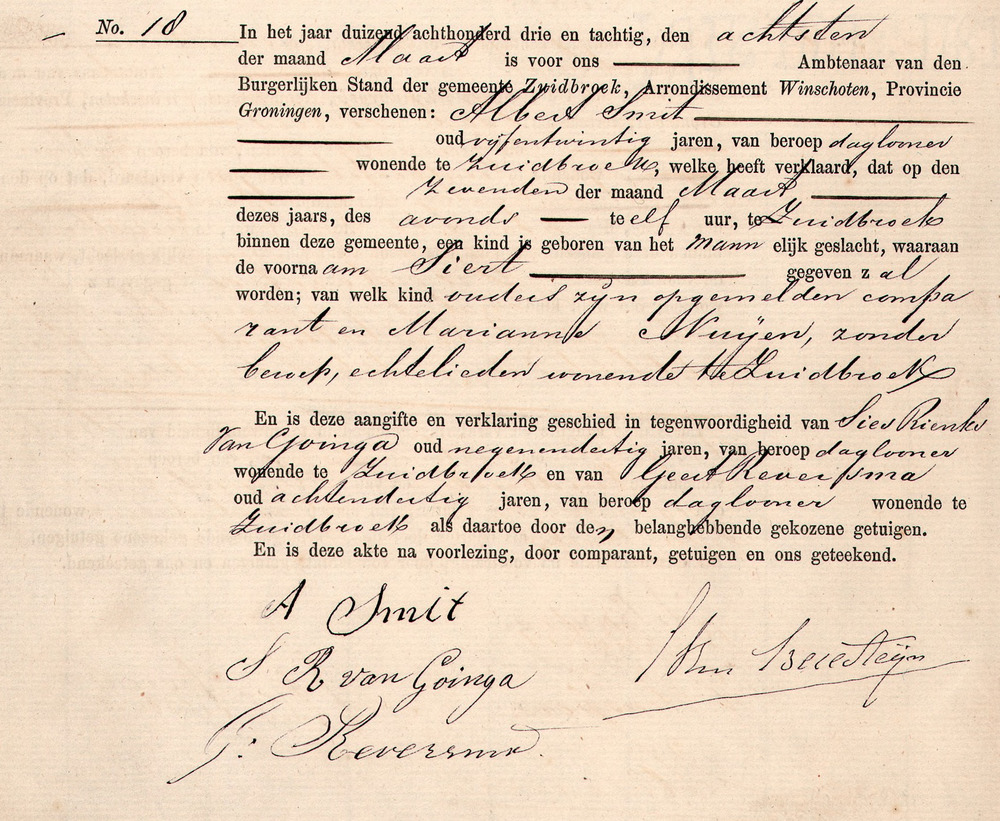 No. 18 In het jaar duizend achthonderd drie en tachtig, den achtsten
der maand Maart is voor ons Ambtenaar van den
Burgerlijken Stand der gemeente Zuidbroek, Arrondissement Winschoten, Provincie
Groningen, verschenen: Albert Smit
oud vijfentwintig jaren, van beroep daglooner
wonende te Zuidbroek, welke heeft verklaard, dat op den
zevenden der maand Maart
dezes jaars, des avonds te elf uur, te Zuidbroek
binnen deze gemeente, een kind is geboren van het mann elijk geslacht, waaraan
de voorna am Siert gegeven z al
worden; van welk kind ouders zijn opgemelden compa
rant en Marianne Nuijen, zonder
beroep, echtelieden wonende te Zuidbroek
En is deze aangifte en verklaring geschied in tegenwoordigheid van Sies Rienks
van Goinga oud negenendertig jaren, van beroep daglooner
wonende te Zuidbroek en van Geert Reversma
oud achtendertig jaren, van beroep daglooner wonende te
Zuidbroek als daartoe door den belanghebbende gekozene getuigen.
En is deze akte na voorlezing, door comparant, getuigen en ons geteekend.
A Smit
S R van Goinga
G. Reversma